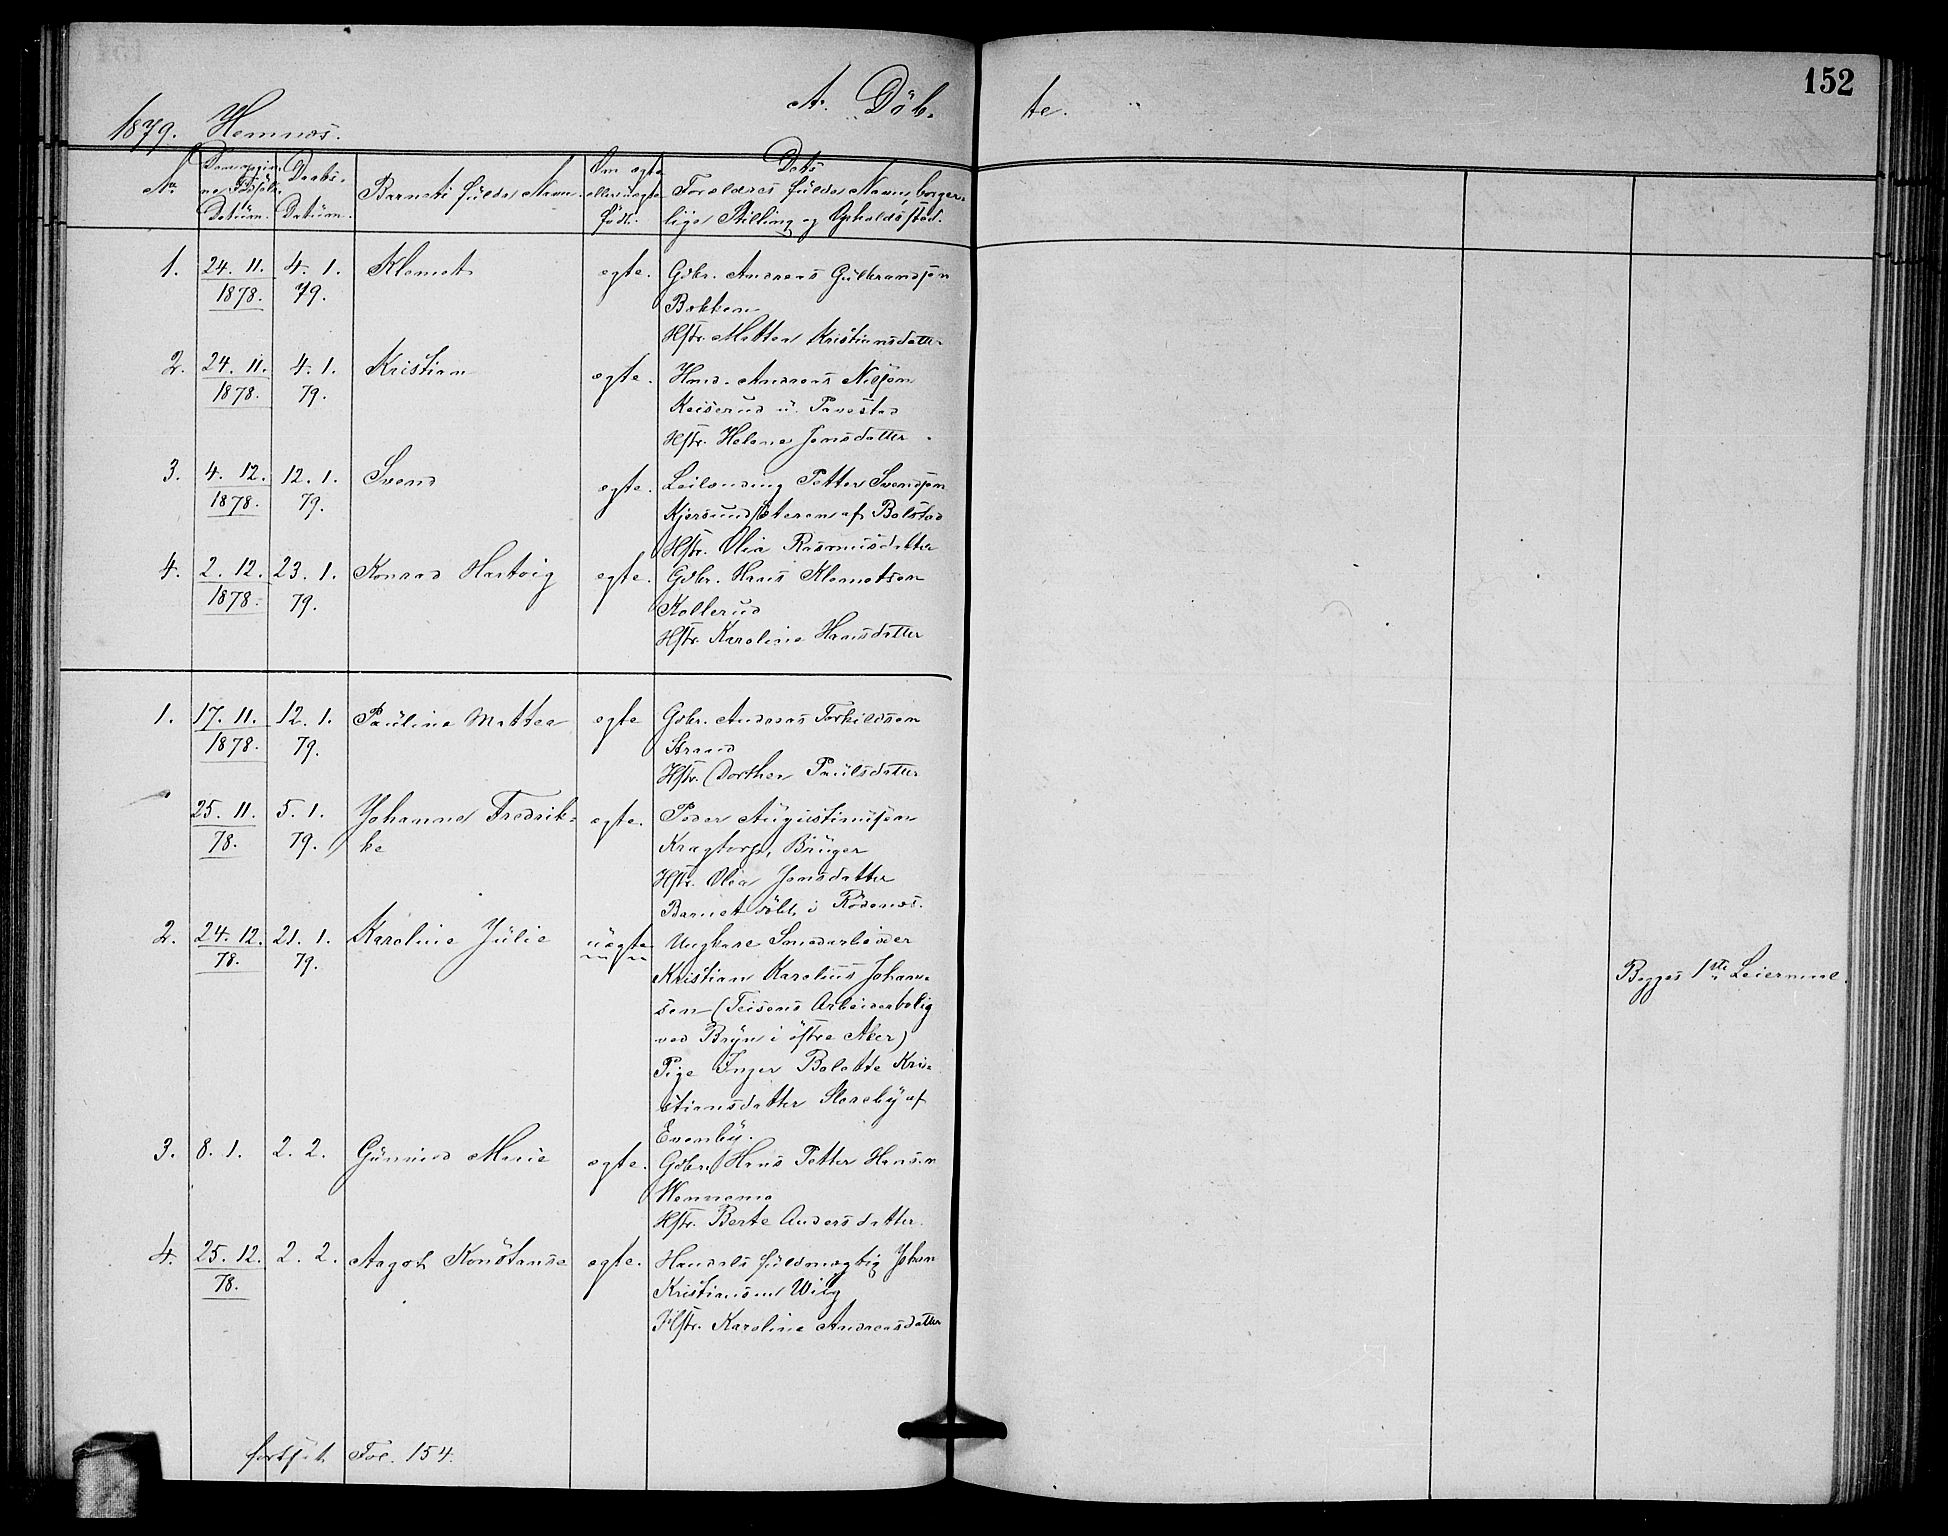 152
A. Döb. te.
1879. Hemnæs.
No Datum. Daabs- Datum. Barnets fulde Navn. Om egte eller uegte født. Dets Forældres fulde Navn, borgerlige Stilling og Opholdssted.
1. 24. 11. 1878. 4. 1. 79. Klemet egte. Gdbr. Andreas Gulbrandsen
Bakken
Hstr. Mathea Kristiansdatter
2. 24. 11. 1878. 4. 1. 79. Kristian egte. Hmd. Andreas Nilsen
Keiserud u. Tævestad
Hstr. Helene Jensdatter
3. 4. 12. 1878. 12. 1. 79. Svend egte. Leilænding Petter Svendsen
Kjersund østeren af Bolstad
Hstr. Olia Rasmusdatter
4. 2. 12. 1878. 23. 1. 79. Konrad Hartvig egte. Gdbr. Hans Klemetsen
Kollerud
Hstr. Karoline Hansdatter
1. 17. 11. 1878. 12. 1. 79. Pauline Mathea egte Gdbr. Andreas Torkildsen
Strand
Hstr. Dorthea Paulsdatter
25. 11. 78. 5. 1. 79. Johanne Fredrik-
ke egte. Peder Augustinusen
Kragtorp, Bruger
Hstr. Olea Jensdatter
Barnet døbt i Rødenæs.
2. 24. 12. 78. 21. 1. 79. Karoline Julie uegte Ungkarl Smedarbeider
Kristian Karelius Johan-
sen (Teisens Arbeiderbolig
ved Bryn i östre Aker)
Pige Inger Bolette Kri-
stiansdatter Skoreby af
Evenby.
Begges 1ste Leiermaal.
3. 8. 1. 2. 2. Gunhild Marie egte. Gdbr. Hans Petter Hansen
Wennemo
Hstr. Berte Andersdatter.
4. 25. 12. 78. 2. 2. Aagot Konstanse egte. Handels fuldmægtig Johan
Kristiansen Wiig
Hstr. Karoline Andreasdatter
fortsat Fol. 154.